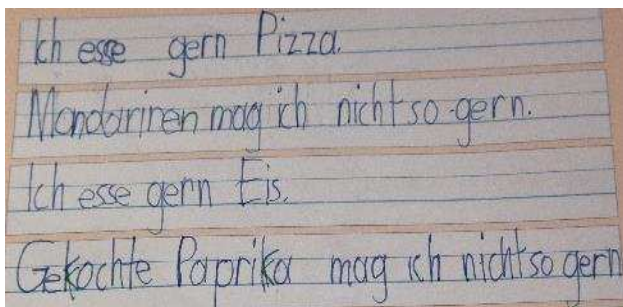 Ich esse gern Pizza.
Mandarinen mag ich nicht so gern.
Ich esse gern Eis.
Gekochte Paprika mag ich nicht so gern